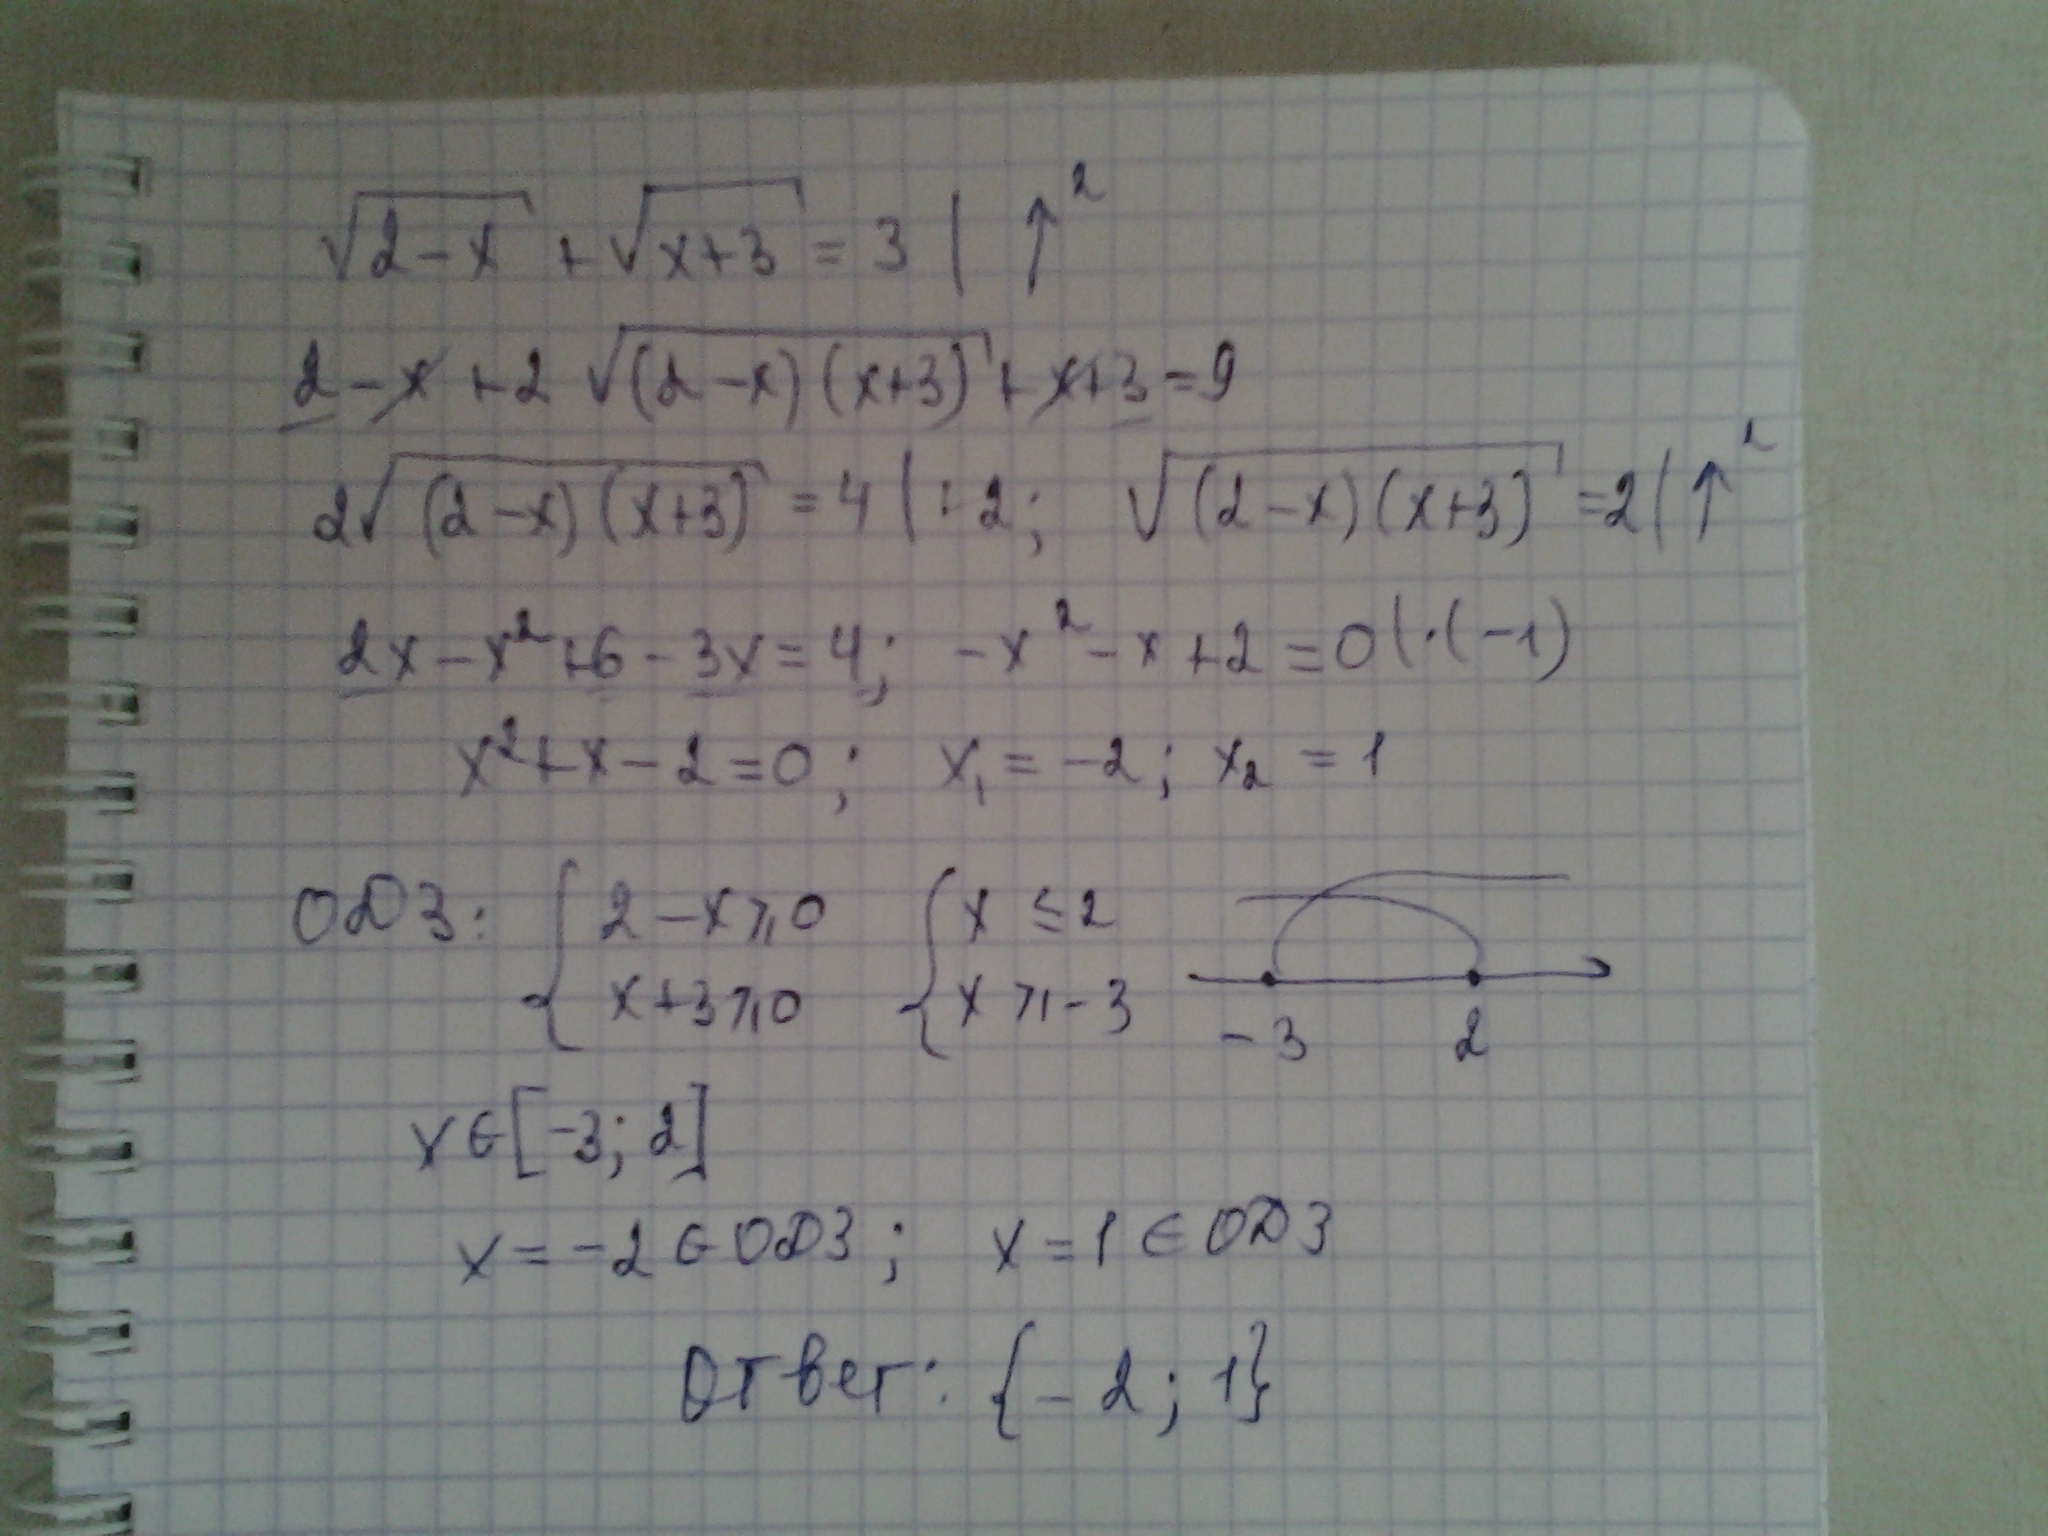 √(2-x) + √(x+3) = 3 | ↑²
2 - x + 2 √((2-x)(x+3)) + x+3 = 9
2√((2-x)(x+3)) = 4 | : 2; √((2-x)(x+3)) = 2 | ↑²
2x - x² + 6 - 3x = 4; -x² - x + 2 = 0 | · (-1)
x² + x - 2 = 0; x₁ = -2; x₂ = 1
ОДЗ: { 2 - x ⩾ 0 { x ≤ 2
x + 3 ⩾ 0 x ⩾ -3
-3 2
x ∈ [-3; 2]
x = -2 ∈ ОДЗ; x = 1 ∈ ОДЗ
Ответ: {-2; 1}